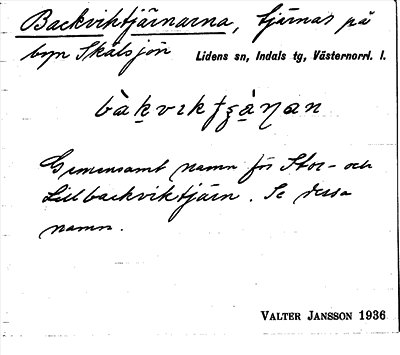 Backviktjärnarna, tjärnar på
byn Skålsjön Lidens sn, Indals tg, Västernorrl. l.
Gemensamt namn för Stor- och
Lillbackviktjärn. Se dessa
namn.
VALTER JANSSON 1936